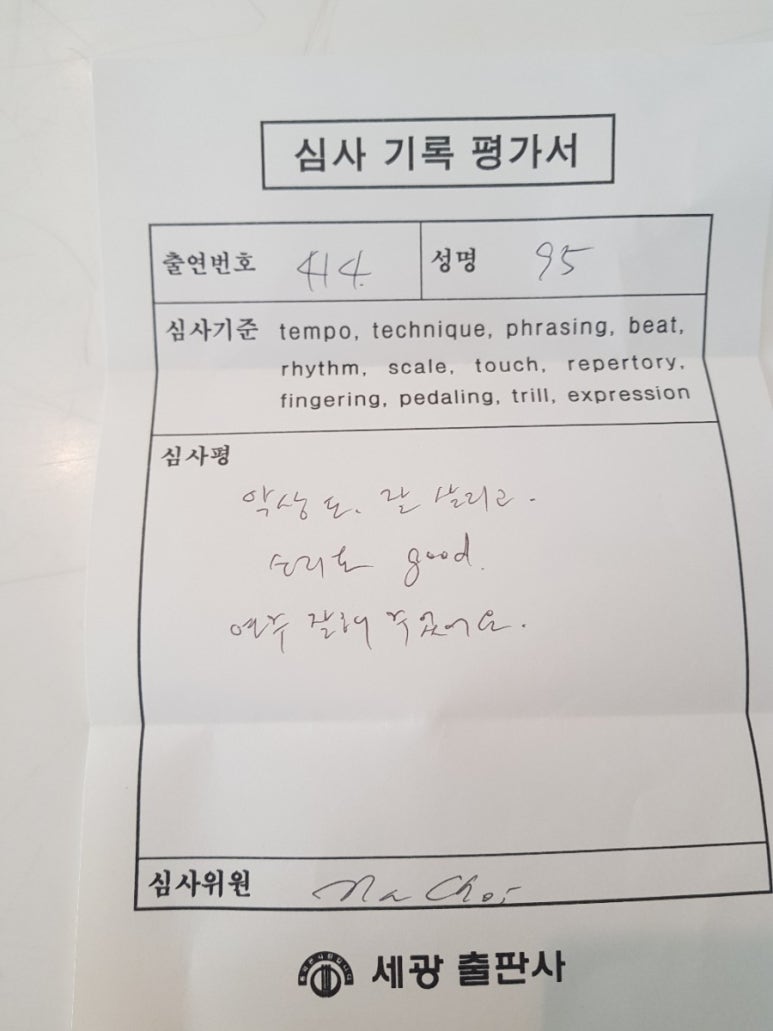 심사 기록 평가서
출연번호 414 성명 95
심사기준 tempo, technique, phrasing, beat,
rhythm, scale, touch, repertory,
fingering, pedaling, trill, expression
심사평
악상도. 잘 살리고.
소리도 good.
연주 잘해 주었어요.
심사위원 Na Choi
세광 출판사